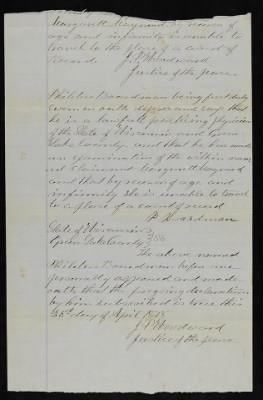 Margaret Maynard by reason of
age and infirmity is unable to
travel to the place of a court of
Record J. P. Woodward
Justice of the peace
Philetus Boardman being first duly
sworn on oath deposes and says that
he is a lawfull practicing physician
of the State of Wisconsin and Green
Lake County, and that he has made
an examination of the within nam
ed claimant Margaret Maynard
and that by reason of age and
infirmity she is unable to travel
to a place of a court of record
P. Boardman
State of Wisconsin
Green Lake County
The above named
Philetus Boardman before me
personally appeared and made
oath that the forgoing declaration
by him subscribed is true this
day of April
J. P. Woodward
Justice of the peace